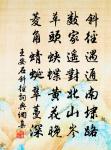 斜徑偶通南埭路
數家遙對北山岑
草頭蛺蝶黃花晚
菱角蜻蜓翠蔓深
王安石斜徑